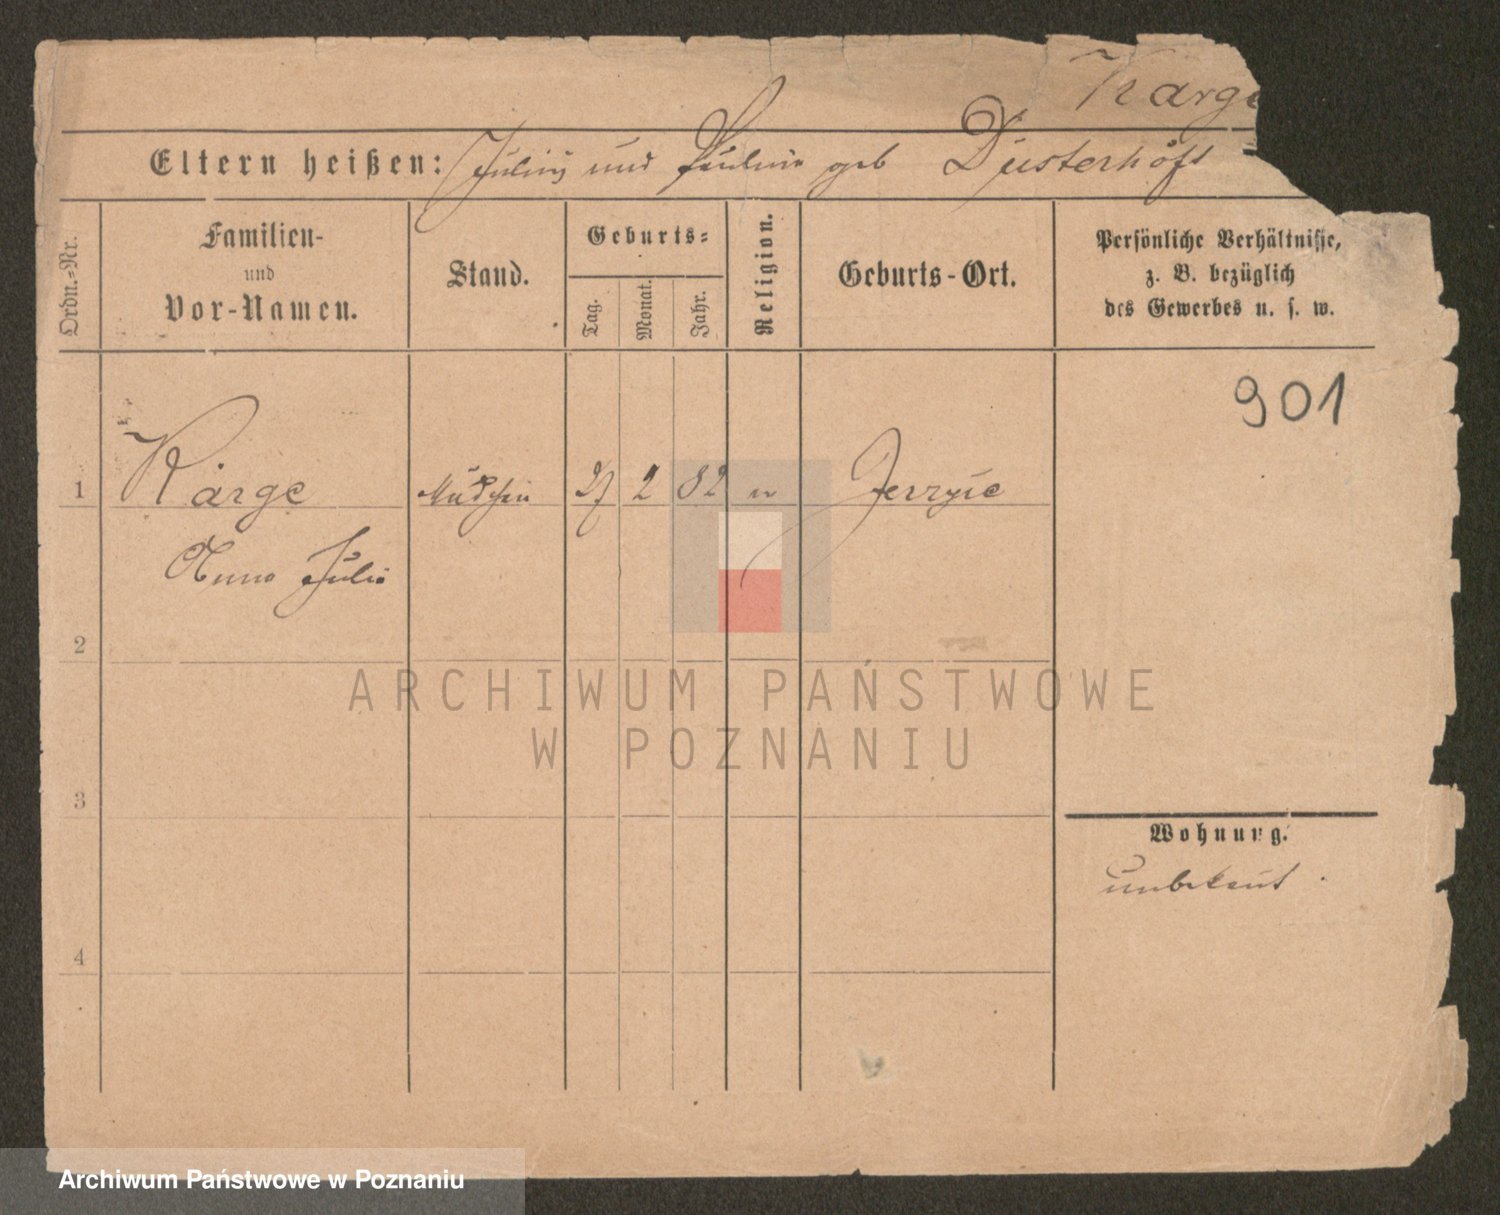 Karge
Eltern heißen: Julius und Pauline geb Dusterhöft
Ordn.-Nr.
Familien-
und
Vor-Namen.
Stand.
Geburts-
Tag.
Monat.
Jahr.
Religion.
Geburts-Ort.
Persönliche Verhältnisse,
z. B. bezüglich
des Gewerbes u. s. w.
901
1 Karge Mädchen 27 2 82 ev Jerzyce
Anna Julia
2
ARCHIWUM PAŃSTWOWE
W POZNANIU
3
Wohnung.
unbekant.
4
Archiwum Państwowe w Poznaniu